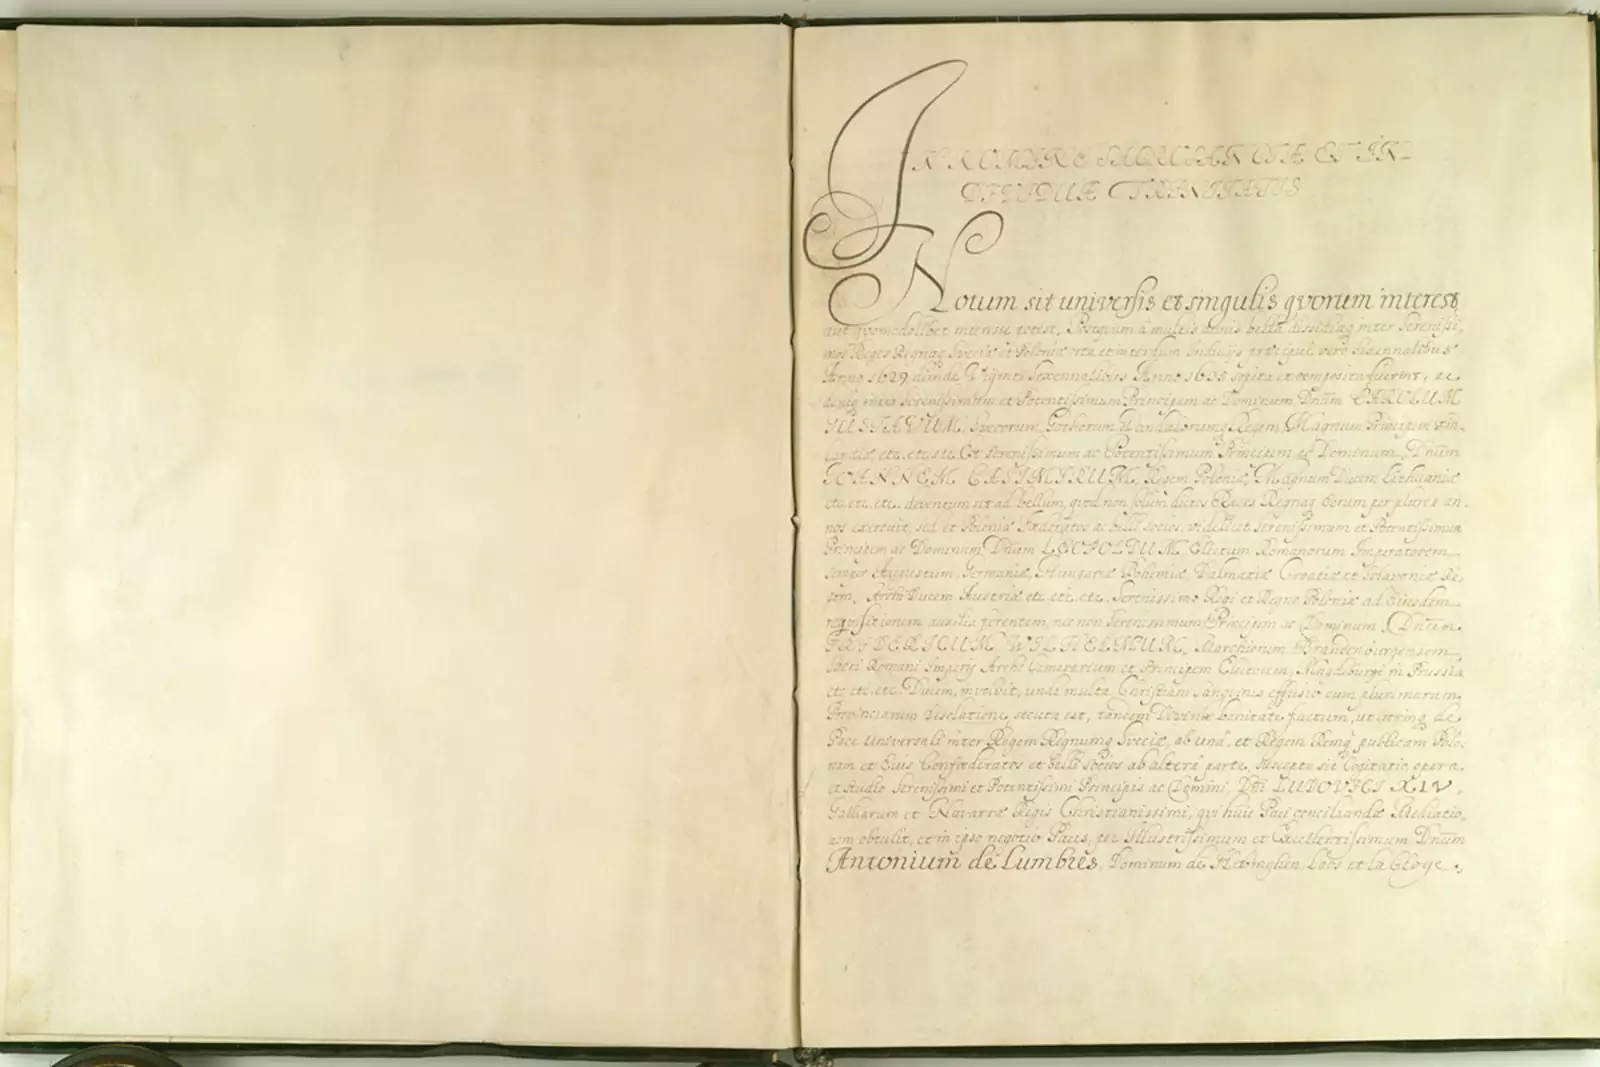 IN NOMINE SACROSANCTÆ ET IN-
DIVIDUÆ TRINITATIS
Notum sit universis et singulis, qvorum interest
aut qvomodolibet interesse potest, Postqvam à multis annis bella dissidiaq inter Serenissi,
mos Reges Regnaq Sveciæ et Poloniæ orta et interdum Inducijs præcipuè vero Sexennalibus
Anno 1629. deinde Viginti Sexennalibus Anno 1635 sopita et composita fuerint, ac
deniq inter Serenissimum et Potentissimum Principem ac Dominum Dnum CAROLUM
GUSTAVUM, Svecorum, Gothorum Vandalorumq Regem, Magnum Principem Fin-
landiæ, etc. etc. etc. Et Serenissimum ac Potentissimum Principem ac Dominum, Dnum
IOANNEM CASIMIRUM, Regem Poloniæ, Magnum Ducem Lithuaniæ
etc. etc. etc. deventum sit ad bellum, qvod non solùm dictos Reges Regnaq Eorum per plures an,
nos exercuit, sed et Poloniæ Fœderatos ac belli Socios, videlicet Serenissimum et Potentissimum
Principem ac Dominum, Dnum LEOPOLDUM, Electum Romanorum Imperatorem
semper Augustum, Germaniæ, Hungariæ Bohemiæ, Dalmatiæ Croatiæ et Sclavoniæ Re,
gem, Archi Ducem Austriæ etc. etc. etc. Serenissimo Regi et Regno Poloniæ ad Eiusdem
reqvisitionem auxilia ferentem, nec non Serenissimum Principem ac Dominum, Dnum
FRIDERICUM WILHELMUM, Marchionem Brandenburgensem,
Sacri Romani Imperij Archi Camerarium et Principem Electorem, Magdeburgi in Prussia
etc. etc. etc. Ducem, involvit, unde multa Christiani Sangvinis effusio cum plurimarum
Provinciarum desolatione secuta est, tandem Divinâ bonitate factum, ut utrinq de
Pace Universali inter Regem Regnumq Sveciæ, ab unâ, et Regem Remq publicam Polo-
nam et Eius Confœderatos et belli Socios ab alterâ parte, suscepta sit Cogitatio, opera
ac studio Serenissimi et Potentissimi Principis ac Domini, Dni LUDOVICI XIV,
Galliarum et Navarræ Regis Christianissimi, qvi huic Paci conciliandæ Mediatio,
nem obtulit, et in ipso negotio Pacis, per Illustrissimum et Excellentissimum Dnum
Antonium de Lumbres, Dominum de Herbinghen, Loos et la Cloye.